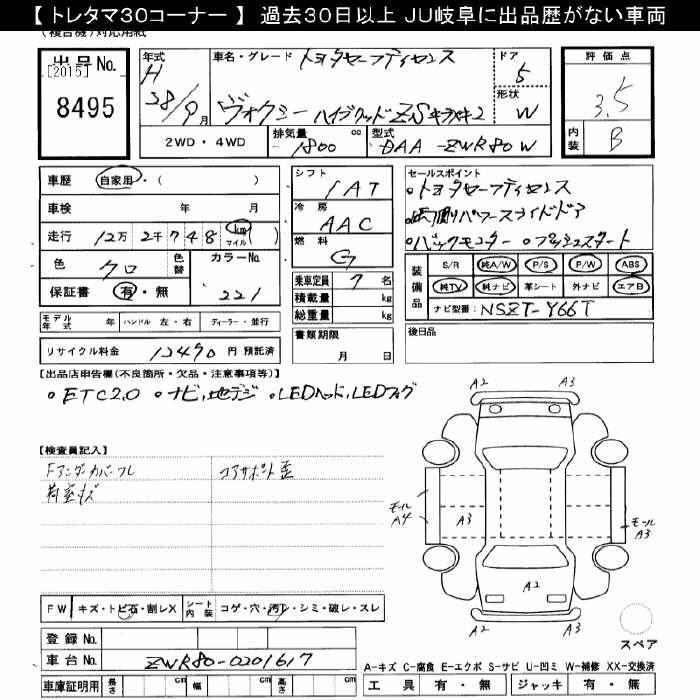 【 トレタマ30コーナー 】 過去30日以上 JU岐阜に出品歴がない車両
(複合機)対応用紙
出品 No.
[2015]
8495
年式
H
28/9月
車名・グレード
トヨタセーフティセンス
ヴォクシー ハイブリッドZS キラメキ2
ドア
5
形状
W
評価点
3.5
内装
B
2WD・4WD
排気量
1800
cc
型式
DAA-ZWR80W
車歴
自家用・( )
車検 年 月
走行 12万 2千 7 4 8 km マイル ( )
色
クロ
色替
カラーNo.
221
保証書 有・無
シフト
IAT
冷房
AAC
燃料
G
乗車定員 7 名
積載量 kg
総重量 kg
セールスポイント
・トヨタセーフティセンス
・両側パワースライドドア
・バックモニター ・プッシュスタート
装備品
S/R 純A/W P/S P/W ABS
純TV 純ナビ 革シート 外ナビ エアB
ナビ型番 NSZT-Y66T
モデル年式 年 ハンドル 左・右 ディーラー・並行
リサイクル料金 12470 円 預託済
書類期限
月 日
後日品
【出品店申告欄(不良箇所・欠品・注意事項等)】
・ETC2.0 ・ナビ,地デジ ・LEDヘッド,LEDフォグ
【検査員記入】
Fアンダーカバーフレ
コアサポート歪
荷室キズ
A2
A3
モール
A4
A3
モール
A3
A2
A2
A3
スペア
FW キズ・トビ石・割レX
シート内装 コゲ・穴・汚レ・シミ・破レ・スレ
登録 No.
車台 No. ZWR80-0201617
車庫証明用 長さ cm 幅 cm 高さ cm
A-キズ C-腐食 E-エクボ S-サビ U-凹ミ W-補修 XX-交換済
工具 有・無 ジャッキ 有・無